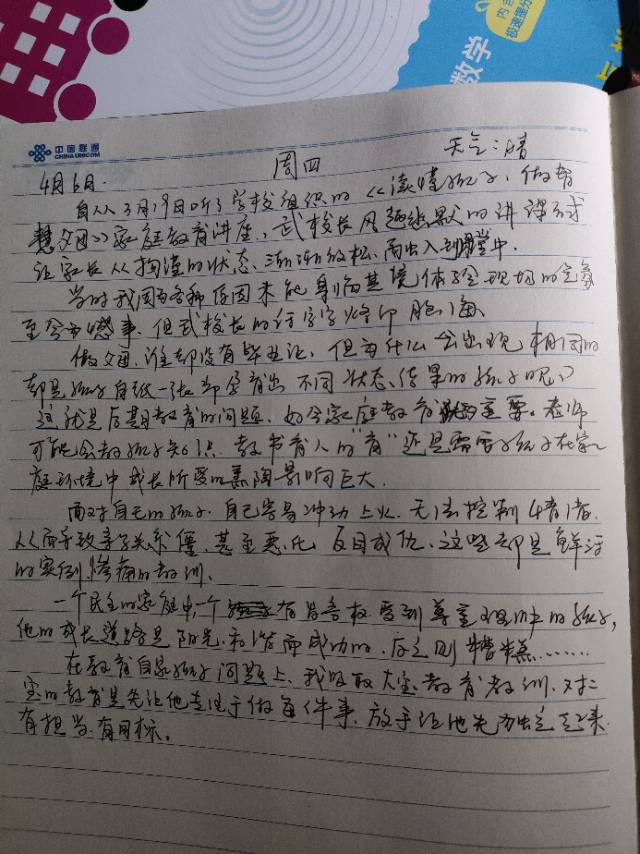 数学
中国联通
CHINA UNICOM
周四 天气:晴
4月6日.
自从3月19日听了学校组织的《读懂孩子,做智
慧父母》家庭教育讲座、武校长风趣幽默的讲课形式
让家长从拘谨的状态、渐渐放松、而出入到课堂中.
当时我因各种原因未能身临其境体会现场的气氛
至今为憾事,但武校长的话字字烙印脑海.
做父母,谁都没有毕业证,但为什么会出现相同的
都是孩子白纸一张却孕育出不同状态结果的孩子呢?
这就是后期教育的问题.如今家庭教育的重要.老师
可能会教孩子知识点.教书育人的"育"还是需要孩子在家
庭环境中成长所受的熏陶影响巨大.
面对自己的孩子.自己容易冲动上火.无法控制情绪.
从而导致亲子关系僵.甚至恶化反目成仇.这些都是鲜活
的实例.惨痛的教训.
一个民主的家庭中,一个有发言权受到尊重的孩子,
他的成长道路是阳光和谐而成功的.反之则糟糕……
在教育自家孩子问题上.我吸取大宝教育教训.对二
宝的教育是先让他专注于做每件事.放手让他先独立起来
有担当.有目标。